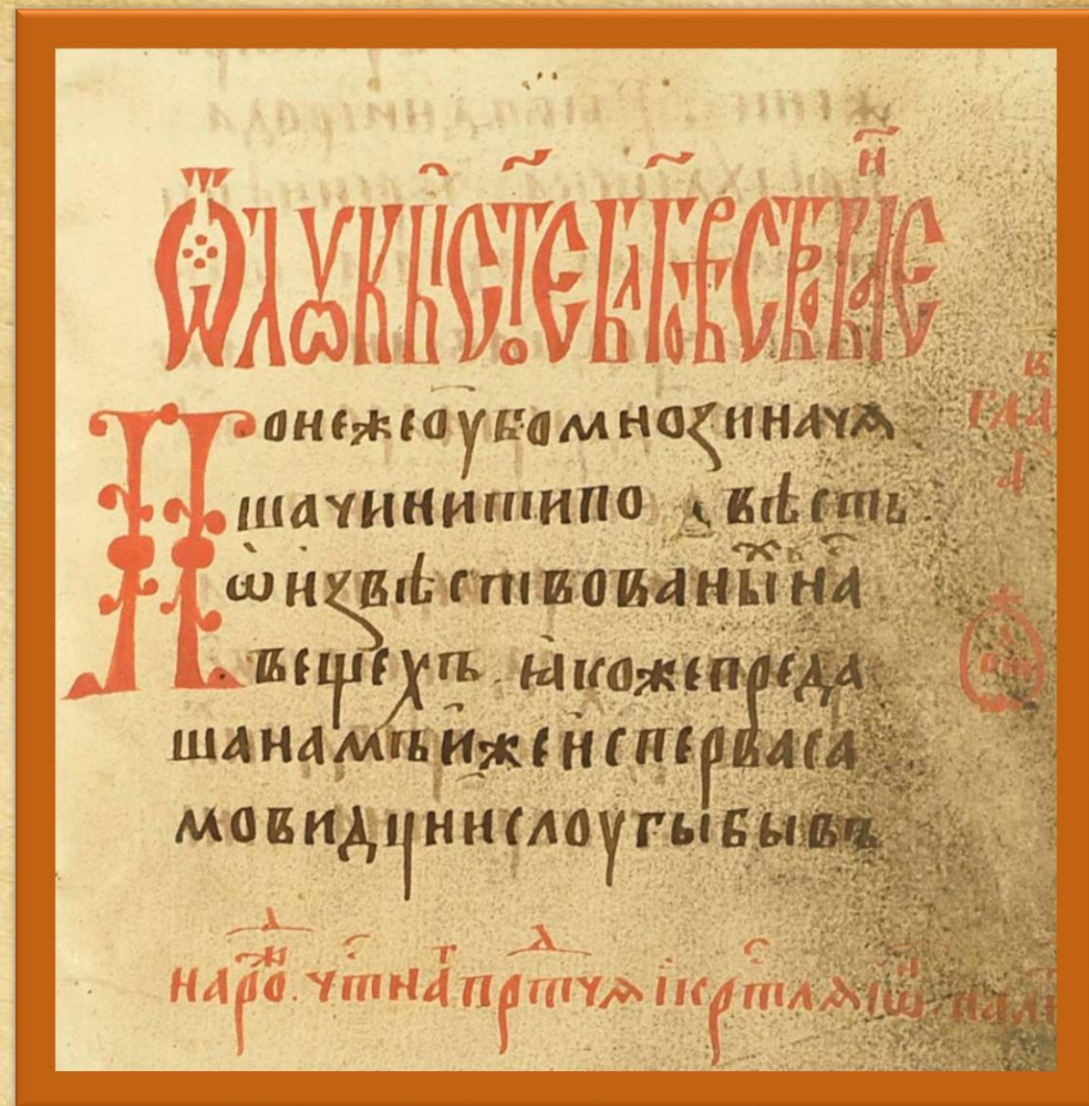 ѿ лꙋкы ст҃ое бл҃говѣствованїе
Понежеоубомноѕиначѧ
шачинитипо вѣсть
ѡиꙁвѣствованыⷯина
въшеⷯхъ ꙗкожепреда
шанамъижеисперваса
мовидциислоугыбывъ
наржⷣо чт҃наⷢ прⷣтчѧ ікрⷭтлѧ іѡⷩ